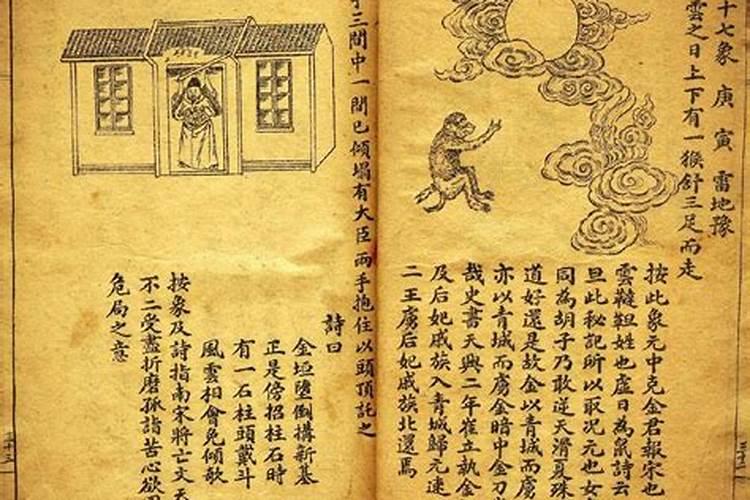 十七象 庚寅 雷地豫
雲之日上下有一猴舒三足而走
按此象元中克金君報宋也
雲韃靼姓也虛日為鼠詩云
旦此秘記所以取况元也女
同為胡子乃敢逆天滑夏殊
道好還是故金以青城而虜
亦以青城而虜金暗中金刀
哉史書天興二年崔立執金
及后妃戚族入青城歸元速
二王虜后妃戚族北還焉
三間中一間已傾塌有大臣兩手抱住以頭頂託之
詩曰
金垣墮倒搆新基
正是傍招柱石時
有一石柱頭戴斗
風雲相會免傾欹
按象及詩指南宋將亡文天
不二受盡折磨孤詣苦心欲
危局之意